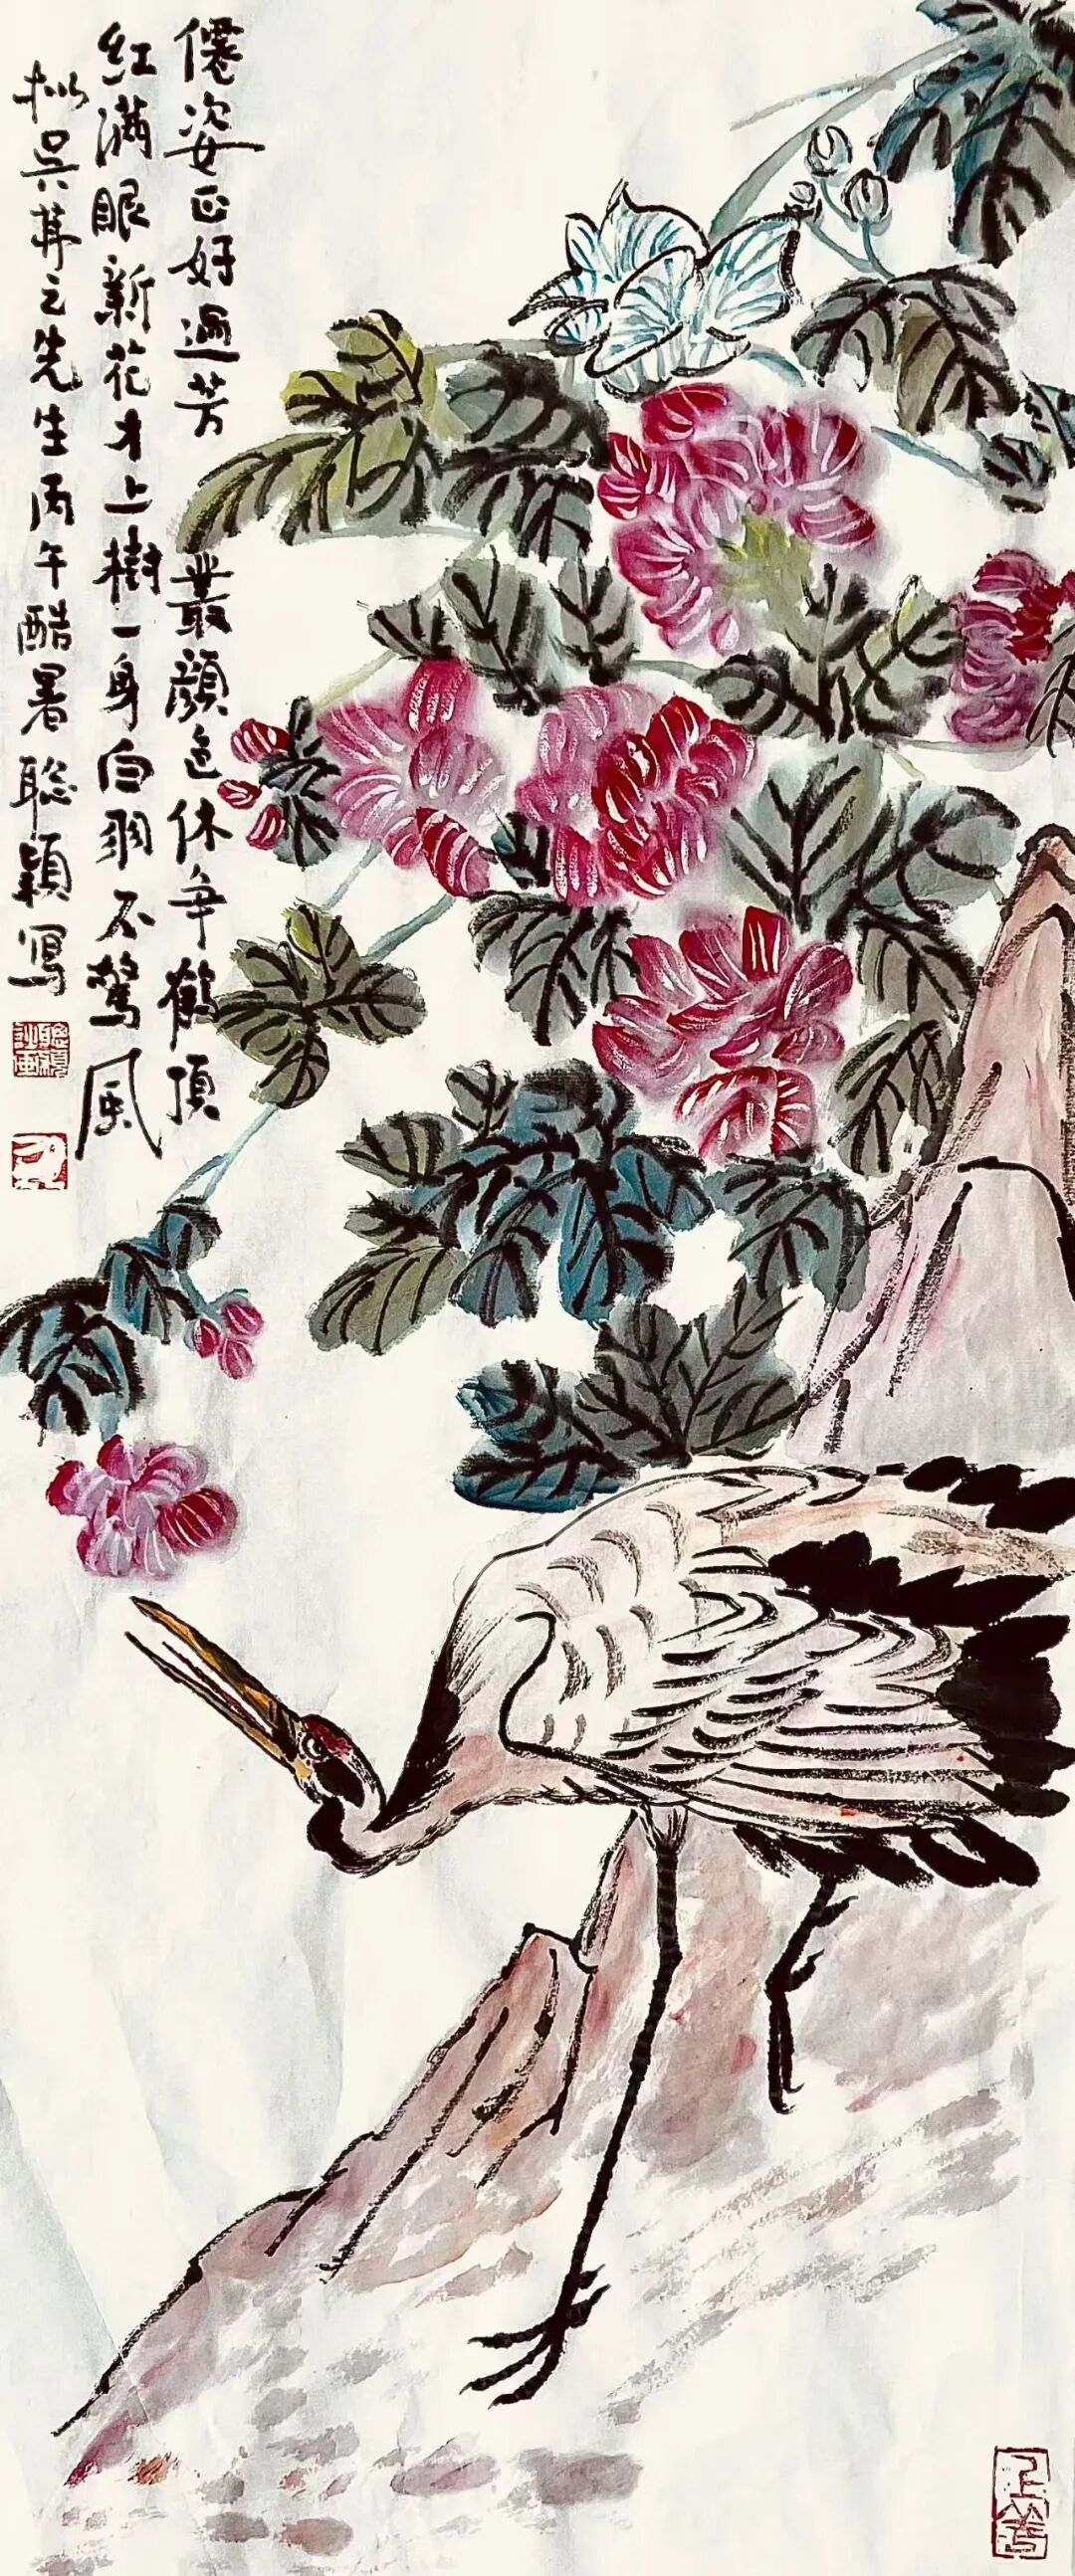 僊姿正好過芳叢顏色休争鶴頂
紅滿眼新花才上樹一身白羽不驚風
拟吴茀之先生丙午酷暑聪颖寫